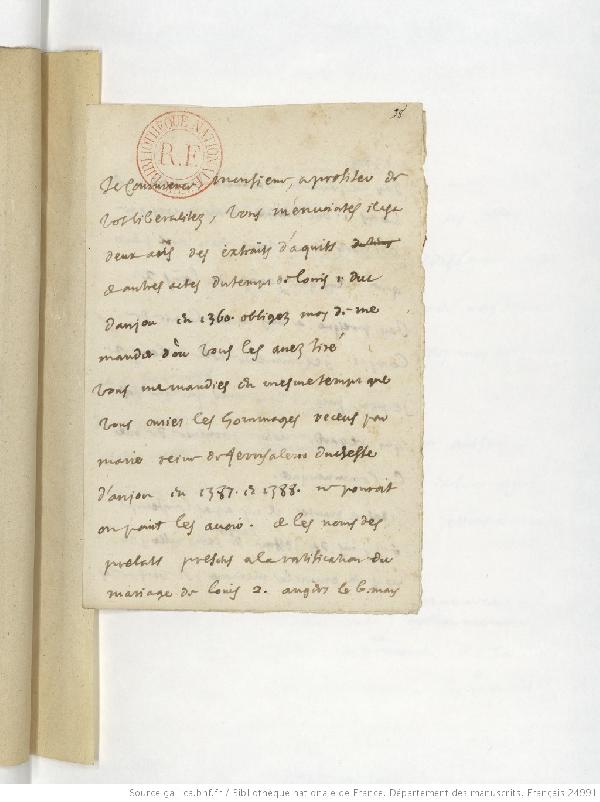 38
BIBLIOTHEQUE NATIONALE
R.F.
Je commence monsieur, a profiter de
vos liberalitez, vous m'enuoiates
deux ans des extraits d'aquits
& autres actes du temps de louis 1 duc
d'anjou en 1360. obligez moy de me
mander d'où vous les auez tiré
vous me mandies en mesme temps que
vous auies les hommages receus par
marie reine de Jerusalem duchesse
d'anjou en 1387. et 1388. ne pouroit
on point les auoir. & les noms des
prelats presens a la ratification du
mariage de louis 2. angers le 6. may
Source gallica.bnf.fr / Bibliothèque nationale de France. Département des manuscrits. Français 24991